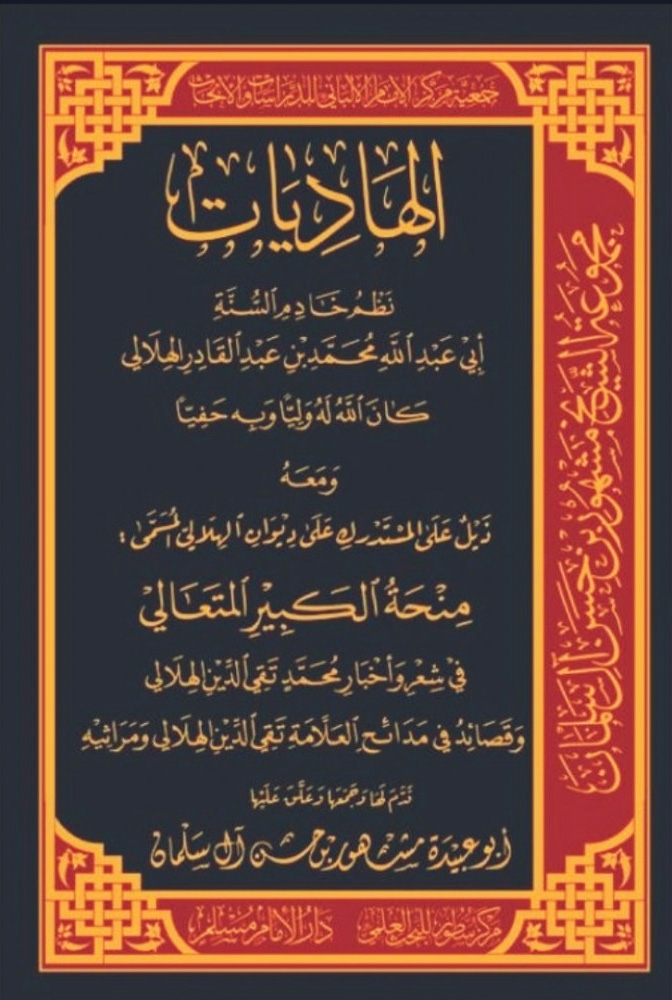 جمعية مركز الإمام الألباني للدراسات والأبحاث
الهَادِيَات
نَظْمُ خَادِمِ السُّنَّةِ
أَبِي عَبْدِ اللَّهِ مُحَمَّدِ بْنِ عَبْدِ القَادِرِ الهِلَالِي
كَانَ اللَّهُ لَهُ وَلِيًّا وَبِهِ حَفِيًّا
وَمَعَهُ
ذَيْلٌ عَلَى المُسْتَدْرَكِ عَلَى دِيوَانِ الهِلَالِيّ المُسَمَّى :
مِنْحَةُ الكَبِيْرِ المُتَعَالِيْ
فِي شِعْرِ وَأَخْبَارِ مُحَمَّدٍ تَقِيِّ الدِّيْنِ الهِلَالِي
وَقَصَائِدُ فِي مَدَائِحِ العَلَّامَةِ تَقِيِّ الدِّيْنِ الهِلَالِي وَمَرَاثِيْهِ
قَدَّمَ لَهَا وَجَمَعَهَا وَعَلَّقَ عَلَيْهَا
أبو عبيدة مشهور بن حسن آل سلمان
مجموعة الشيخ مشهور بن حسن آل سلمان
مركز سطور للبحث العلمي
دار الإمام مسلم